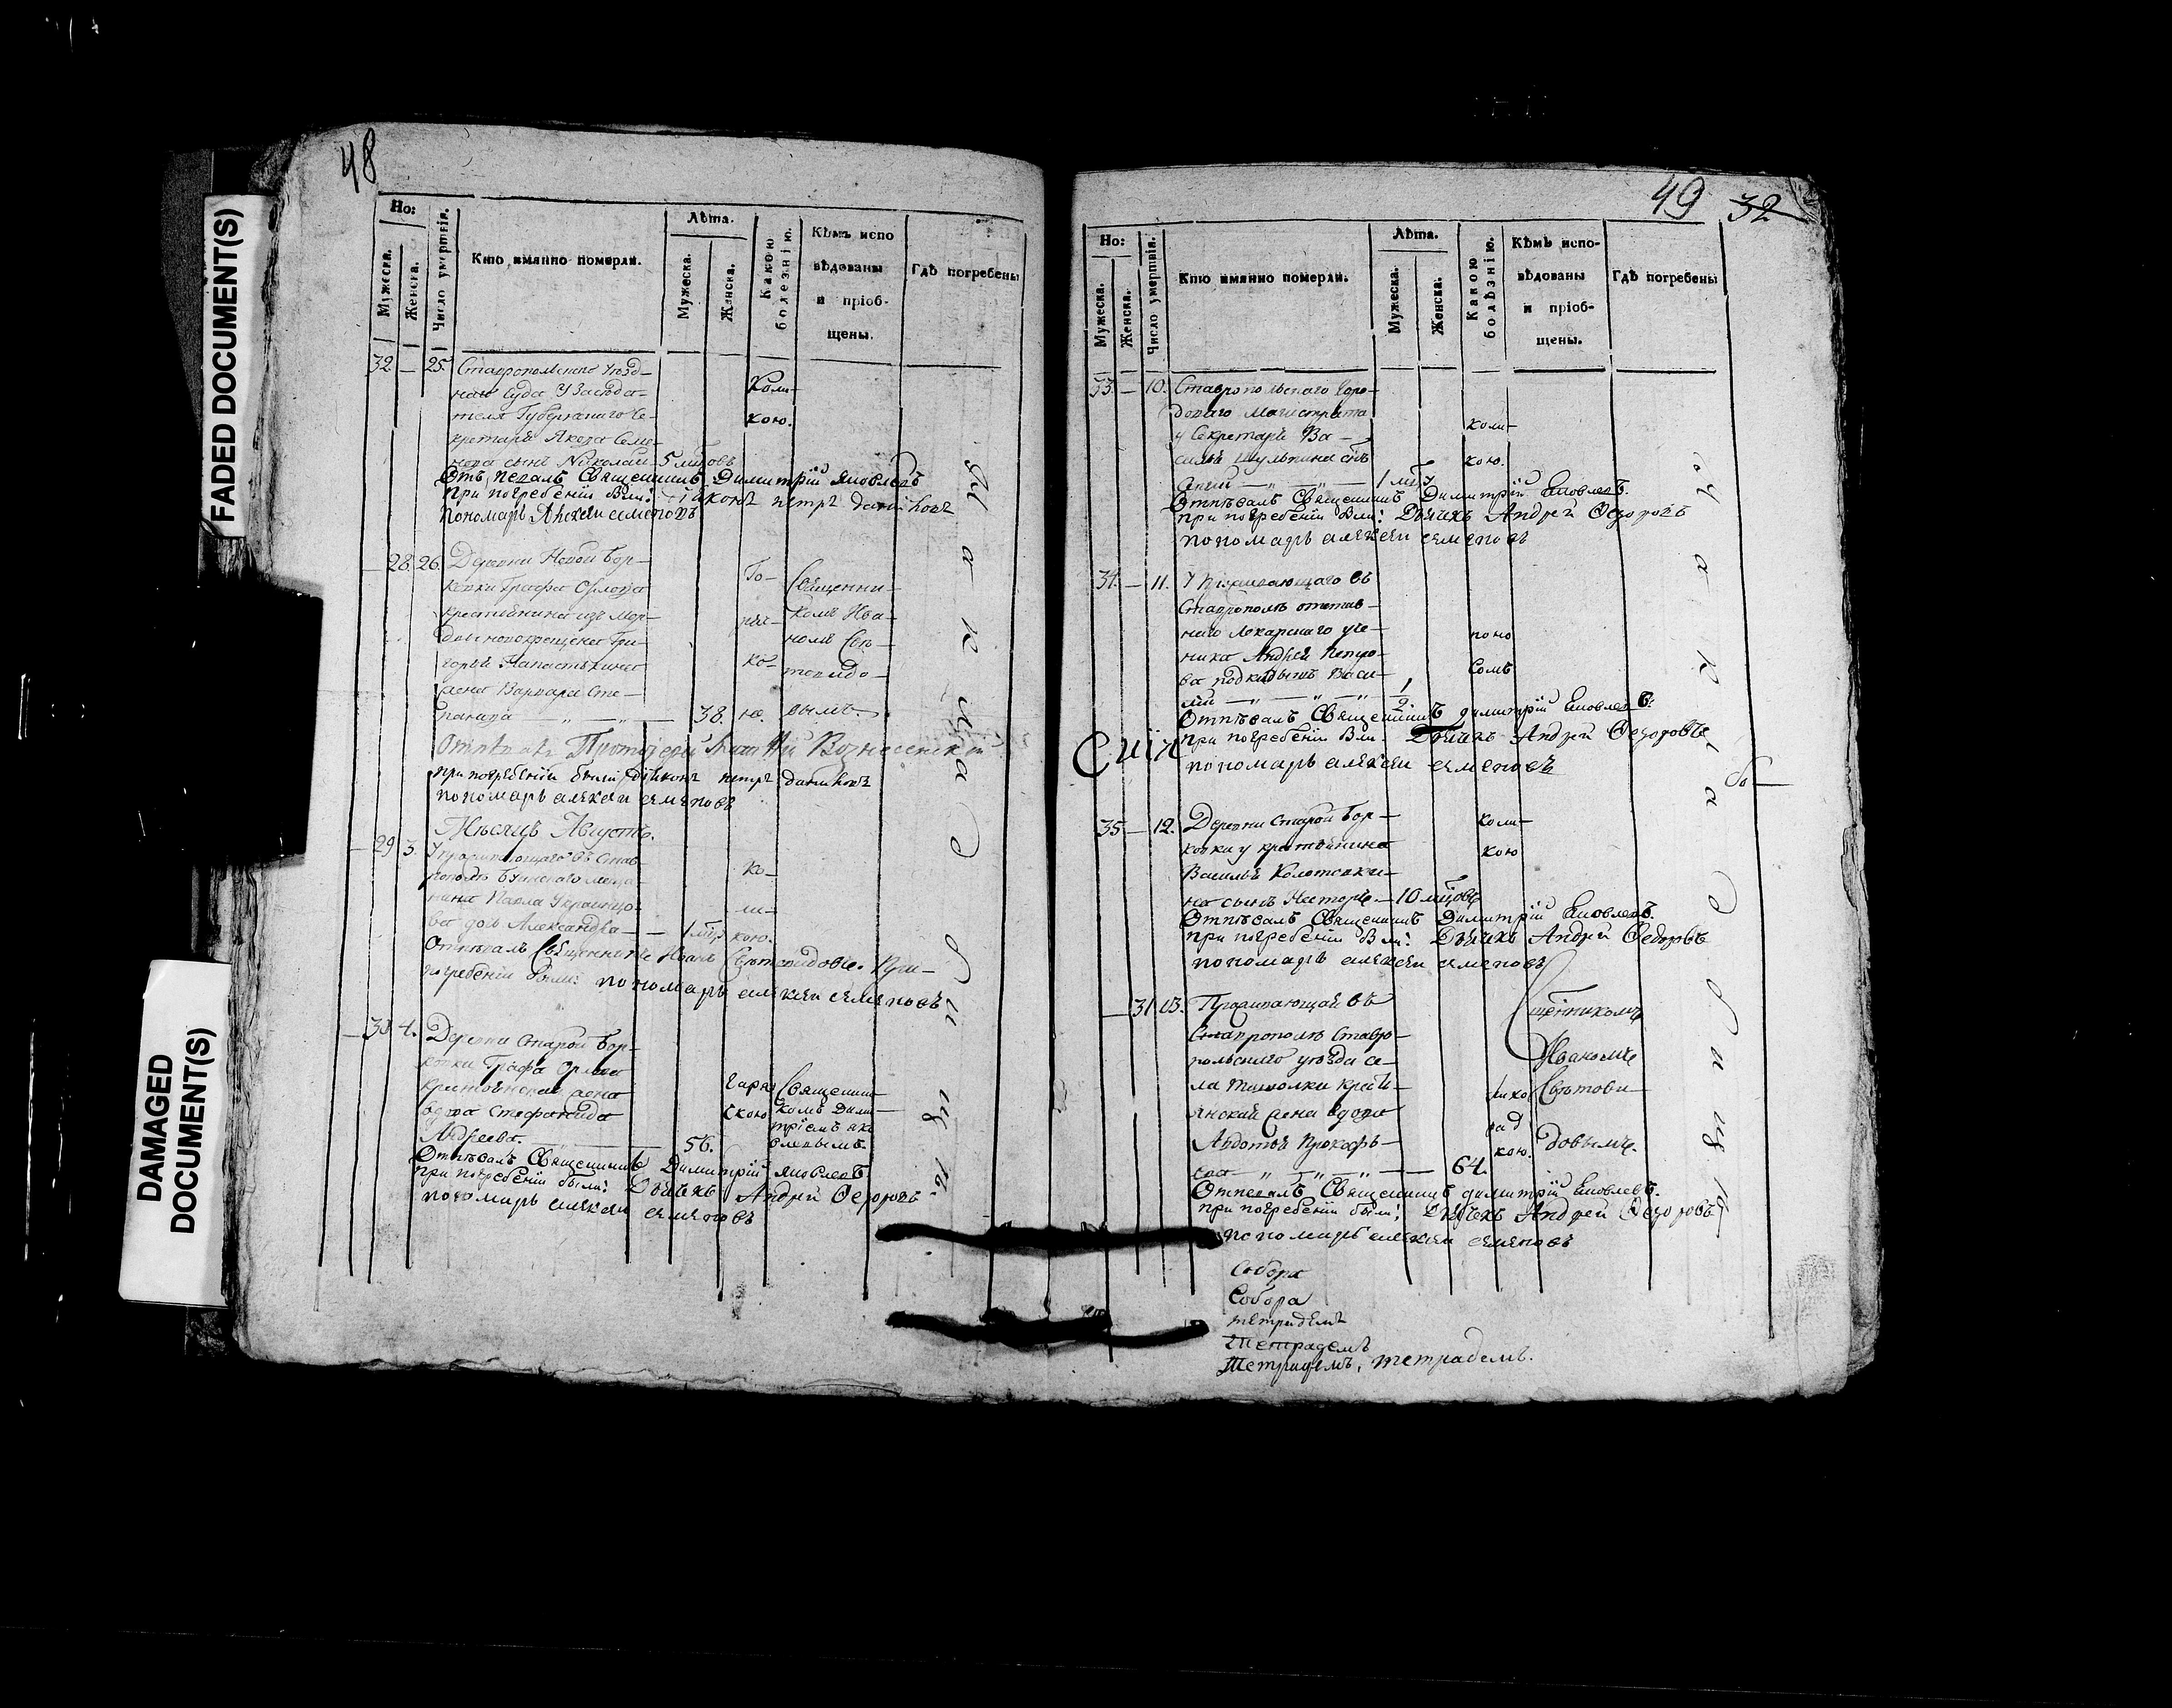 FADED DOCUMENT(S)
DAMAGED
DOCUMENT(S)
48
Но:
Мужеска.
Женска.
Число умертвія.
Кто имянно померли.
Лѣта.
Мужеска.
Женска.
Какою
болезнію.
Кѣмъ испо
вѣдованы
и пріоб-
щены.
Гдѣ погребены
32 — 25. Ставропольскаго Уѣзд-
наго Суда У Засѣда-
теля Губернскаго Се-
кретаря Якова Семе-
нова сынъ Николай 5 мцовъ
Коли-
кою.
Отъпевалъ Священникъ Димитрій Яковлевъ
При погребеніи Были: діаконъ петръ
Пономарь Алексеи семеновъ
— 28. 26. Деревни Новой Бор-
ковки Графа Орлова
крестьянина изъ Мор-
двы новокрещена Гри-
горья
жена Варвара Сте-
панова — „ — „ — 38.
Го-
ряч-
ко-
ю.
Священни-
комъ Ива-
номъ Свѣ-
товидо-
вымъ.
Отпѣвалъ Протоіерей Вознесенскій
при погребеніи были діаконъ петръ
пономарь алексеи семеновъ
Мѣсяцъ Августъ.
— 29 3. У проживающаго въ Став-
рополѣ меща-
нина Павла Украинцо-
ва дочь Александра — — 1 мцъ
Ко-
ли-
кою.
Отпевалъ Священникъ Иванъ Свѣтовидовъ. При
погребеніи Были: пономарь алексеи семеновъ
— 30 4. Деревни Старой Бор-
ковки Графа Орлова
крестьянская жена
вдова Стефанида
Андреева. 56.
Горяч
кою
Священни-
комъ Дими-
тріемъ яко
влевымъ.
Отпѣвалъ Священникъ Димитрій яковлевъ
при погребеніи были: Дьячекъ Андрей Ѳедоровъ
пономарь алексеи семеновъ
На кладбищѣ.
49 32
Но:
Мужеска.
Женска.
Число умертвія.
Кто имянно померли.
Лѣта.
Мужеска.
Женска.
Какою
болѣзнію.
Кѣмъ испо-
вѣдованы
и пріоб-
щены.
Гдѣ погребены
33. — 10. Ставропольскаго Горо-
доваго Магистрата
у Секретаря Ва-
силья Шульпина снъ
— „ — „ — 1 мцъ
коли-
кою.
Отпѣвалъ Священникъ Димитрій Яковлевъ.
При погребеніи Были: Дьячекъ Андрей Ѳедоровъ
пономарь алексеи семеновъ
34. — 11. У Проживающаго въ
Ставрополѣ отстав-
наго Лекарскаго уче-
ника Андрея Петро-
ва подкидышъ Васи-
лій — „ — „ — „ 1/2.
поно
сомъ
Отпѣвалъ Священникъ димитрій Яковлевъ.
при погребеніи Были: Дьячекъ Андрей Ѳедоровъ
пономарь алексеи семеновъ
35 — 12. Деревни Старой Бор-
ковки у крестьянина
Василья
на сынъ Несторъ — 10 мцовъ
коли-
кою
Отпѣвалъ Священникъ Димитрій Яковлевъ.
при погребеніи Были: Дьячекъ Андрей Ѳедоровъ
пономарь алексеи семеновъ
— 31 13. Проживающей въ
Ставрополѣ Ставро-
польскаго уѣзда се-
ла Ташолки крестъ-
янской жена вдова
Авдотья Прокофь-
ева — „ — „ — „ — 64.
лихо
рад
кою.
Священникомъ
Иваномъ
Свѣтови-
довымъ.
Отпевалъ Священникъ димитрій Яковлевъ.
при погребеніи были: Дьячекъ Андрей Ѳедоровъ
пономарь алексеи семеновъ
На кладбищѣ
Собора
Собора
тетрадемъ
Тетрадемъ
Тетрадемъ, тетрадемъ.